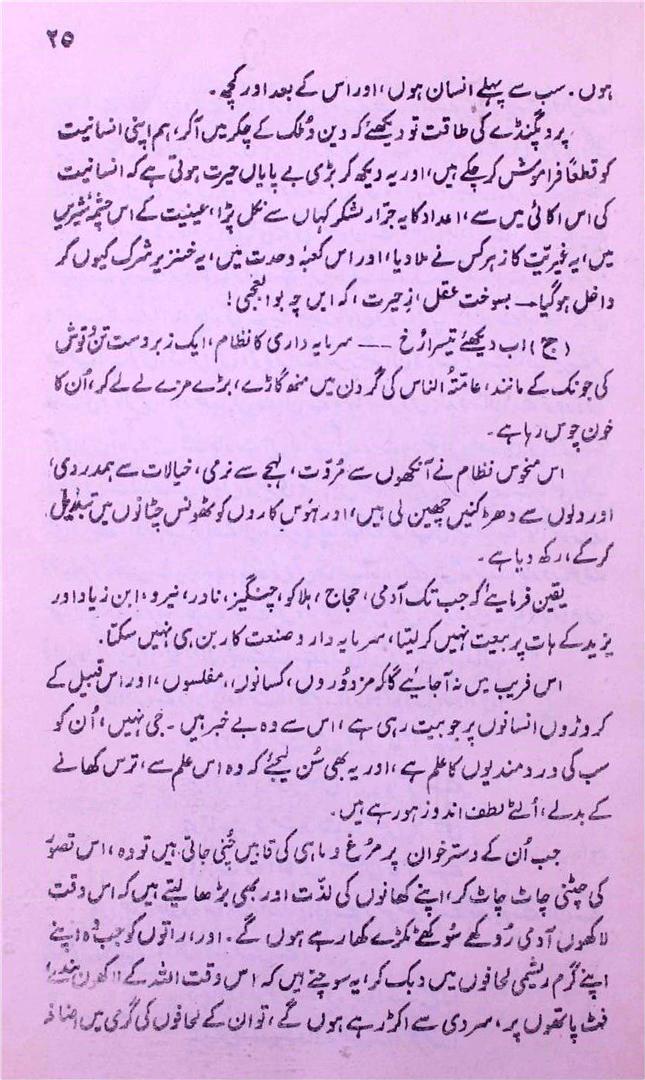 ۲۵
ہوں۔ سب سے پہلے انسان ہوں، اور اس کے بعد اور کچھ۔
پروپگنڈے کی طاقت تو دیکھئے کہ دین و ملک کے چکر میں آکر، ہم اپنی انسانیت
کو قطعاً فراموش کر چکے ہیں، اور یہ دیکھ کر بڑی بے پایاں حیرت ہوتی ہے کہ انسانیت
کی اس اکائی میں سے، اعداد کا یہ جرّار لشکر کہاں سے نکل پڑا، عینیت کے اس چشمۂ شیریں
میں، یہ غیریّت کا زہر کس نے ملا دیا، اور اس کعبۂ وحدت میں، یہ خنزیرِ شرک کیوں کر
داخل ہوگیا — بسوخت عقل، زحیرت، کہ ایں چہ بوالعجمی!
(ج) اب دیکھئے تیسرا رُخ —— سرمایہ داری کا نظام، ایک زبردست تن و توش
کی جونک کے مانند، عامّتہُ الناس کی گردن میں منھ گاڑے، بڑے مزے لے لے کر، اُن کا
خون چوس رہا ہے۔
اس منحوس نظام نے آنکھوں سے مُروّت، لہجے سے نرمی، خیالات سے ہمدردی،
اور دلوں سے دھڑکنیں چھین لی ہیں، اور ہَوَس کاروں کو ٹھونس چٹانوں میں تبدیل
کرکے، رکھ دیا ہے۔
یقین فرمایئے کہ جب تک آدمی، حجاج، ہلاکو، چنگیز، نادر، نیرو، ابن زیاد اور
یزید کے ہات پر بیعت نہیں کر لیتا، سرمایہ دار و صنعت کار بن ہی نہیں سکتا۔
اس فریب میں نہ آجایئے گا کہ مزدوُروں، کسانوں، مفلسوں، اور اس قبیل کے
کروڑوں انسانوں پر جو بیت رہی ہے، اس سے وہ بے خبر ہیں۔ جی نہیں، اُن کو
سب کی دردمندیوں کا علم ہے، اور یہ بھی سُن لیجئے کہ وہ اس علم سے، ترس کھانے
کے بدلے، اُلٹے لطف اندوز ہو رہے ہیں۔
جب اُن کے دسترخوان پر مرُغ و ماہی کی قابیں چُنی جاتی ہیں تو وہ، اس تصوّر
کی چٹنی چاٹ چاٹ کر، اپنے کھانوں کی لذّت اور بھی بڑھا لیتے ہیں کہ اس وقت
لاکھوں آدمی رُوکھے سُوکھے ٹکڑے کھا رہے ہوں گے۔ اور، راتوں کو جب وُہ اپنے
اپنے گرم ریشمی لحافوں میں دبک کر، یہ سوچتے ہیں کہ اس وقت اللہ کے لاکھوں بندے
فٹ پاتھوں پر، سردی سے اکڑ رہے ہوں گے، تو ان کے لحافوں کی گرمی میں اضافہ